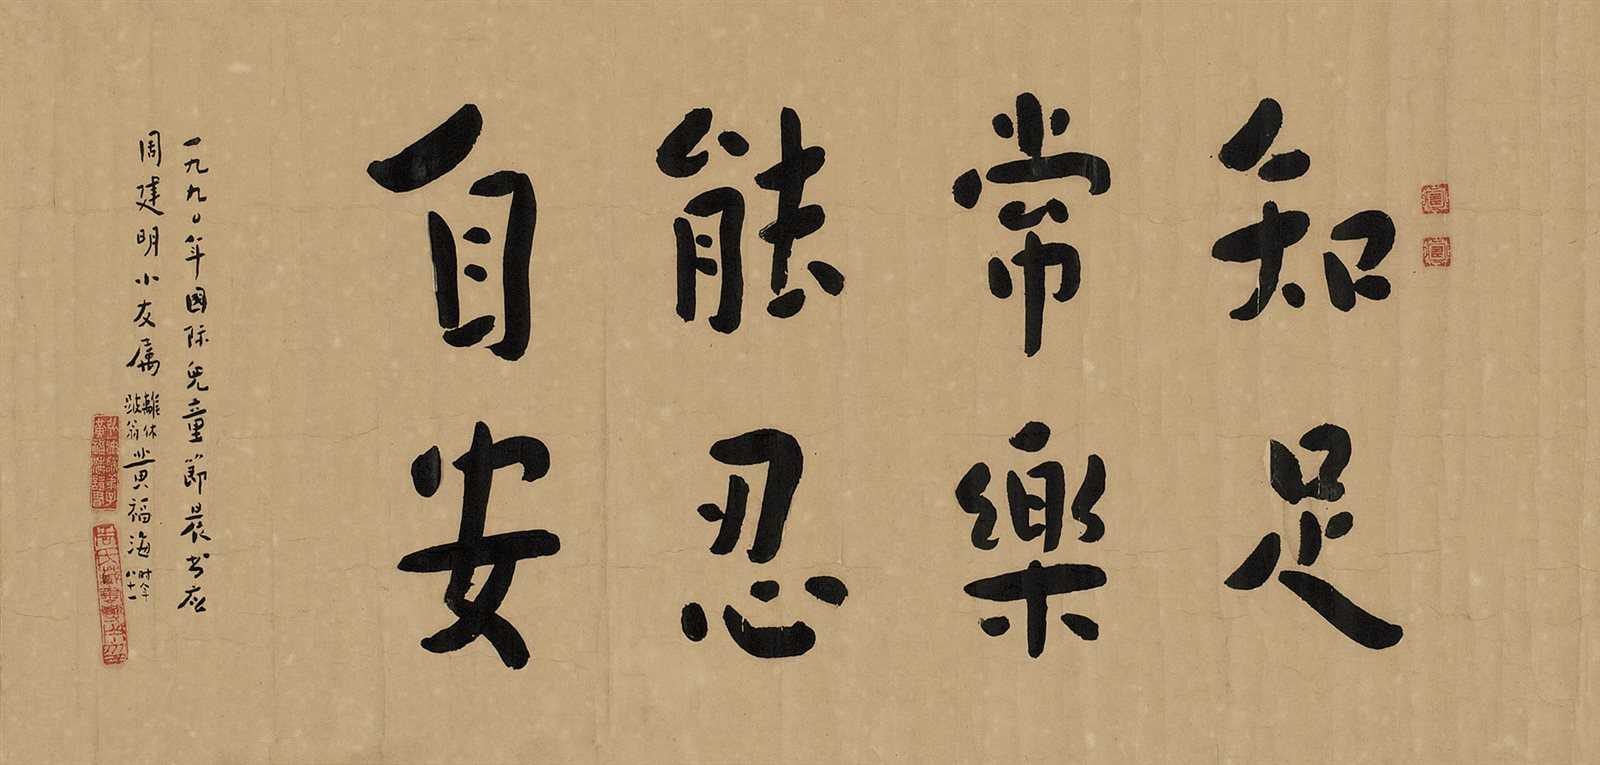 知足
常樂
能忍
自安
一九九〇年國际兒童節晨书应
周建明小友属
離休
跛翁
黄福海
时年
八十一